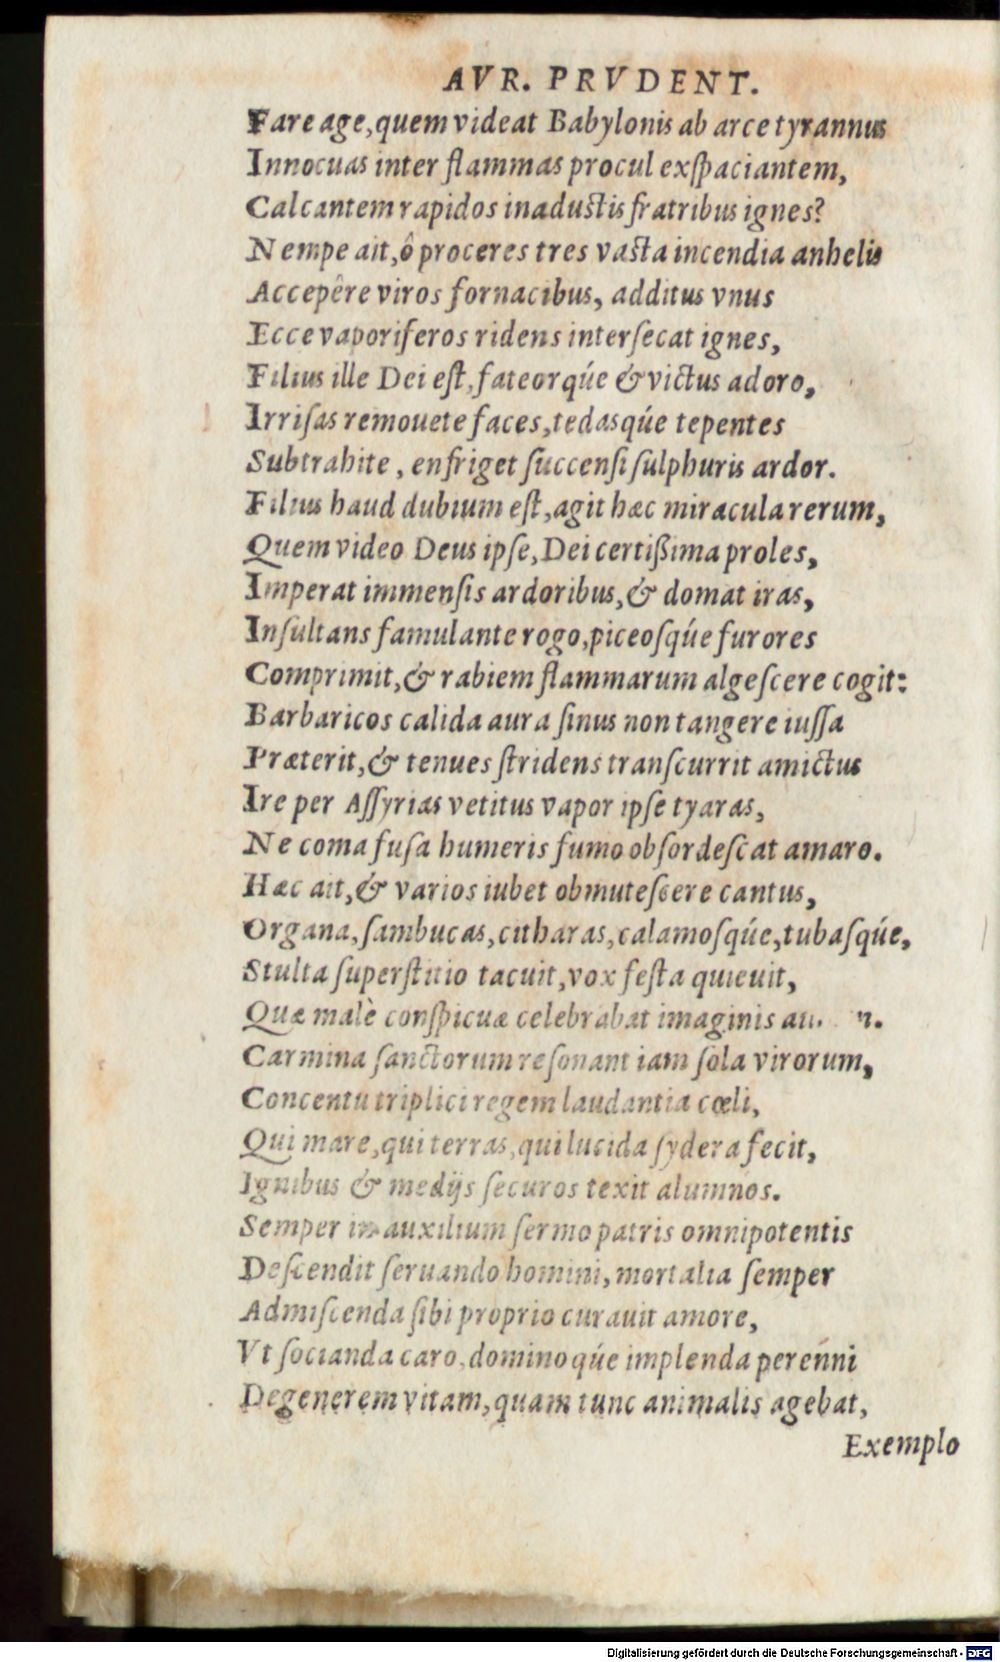 AVR. PRVDENT.
Fare age, quem videat Babylonis ab arce tyrannus
Innocuas inter flammas procul exſpaciantem,
Calcantem rapidos inadustis fratribus ignes?
Nempe ait, ô proceres tres vasta incendia anhelis
Accepêre viros fornacibus, additus vnus
Ecce vaporiferos ridens interſecat ignes,
Filius ille Dei eſt, fateorqúe & victus adoro,
Irriſas remouete faces, tedasqúe tepentes
Subtrahite, enfriget ſuccenſi ſulphuris ardor.
Filius haud dubium eſt, agit hæc miracula rerum,
Quem video Deus ipſe, Dei certißima proles,
Imperat immenſis ardoribus, & domat iras,
Inſultans famulante rogo, piceoſqúe furores
Comprimit, & rabiem flammarum algeſcere cogit:
Barbaricos calida aura ſinus non tangere iuſſa
Præterit, & tenues ſtridens tranſcurrit amictus
Ire per Aſſyrias vetitus vapor ipſe tyaras,
Ne coma fuſa humeris fumo obſordeſcat amaro.
Hæc ait, & varios iubet obmuteſcere cantus,
Organa, ſambucas, citharas, calamoſqúe, tubaſqúe,
Stulta ſuperſtitio tacuit, vox feſta quieuit,
Quæ malè conſpicuæ celebrabat imaginis
Carmina ſanctorum reſonant iam ſola virorum,
Concentu triplici regem laudantia cœli,
Qui mare, qui terras, qui lucida ſydera fecit,
Ignibus & medijs ſecuros texit alumnos.
Semper in auxilium ſermo patris omnipotentis
Deſcendit ſeruando homini, mortalia ſemper
Admiſcenda ſibi proprio curauit amore,
Vt ſocianda caro, domino qúe implenda perenni
Degenerem vitam, quam tunc animalis agebat,
Exemplo
Digitalisierung gefördert durch die Deutsche Forschungsgemeinschaft - DFG